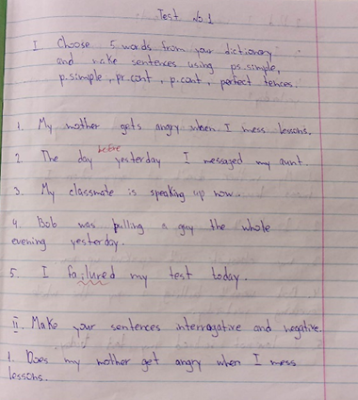 Test No 1
I Choose 5 words from your dictionary
and make sentences using ps. simple,
p. simple, pr. cont, p. cont, perfect tences.
1. My mother gets angry when I mess lessons.
before
2. The day yesterday I messaged my aunt.
3. My classmate is speaking up now.
4. Bob was pulling a guy the whole
evening yesterday.
5. I failured my test today.
ii. Make your sentences interrogative and negative
1. Does my mother get angry when I mess
lessons.